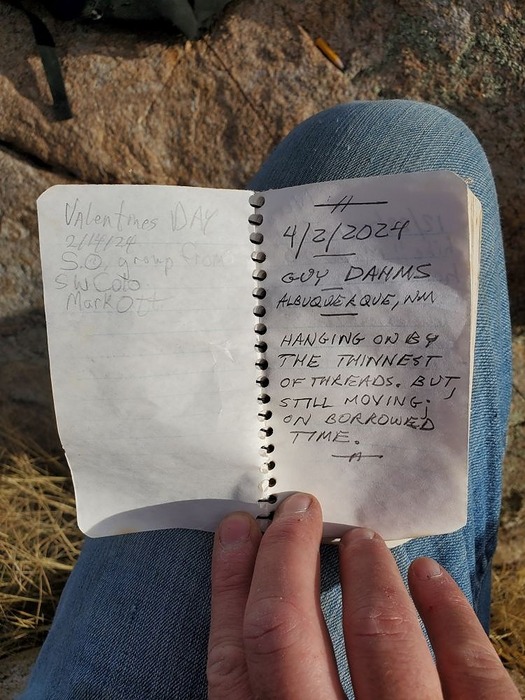 Valentines DAY
2/14/24
S.O. group from
SW Colo
Mark Ott
4/2/2024
GUY DAHMS
ALBUQUERQUE, NM
HANGING ON BY
THE THINNEST
OF THREADS. BUT,
STILL MOVING;
ON BORROWED
TIME.